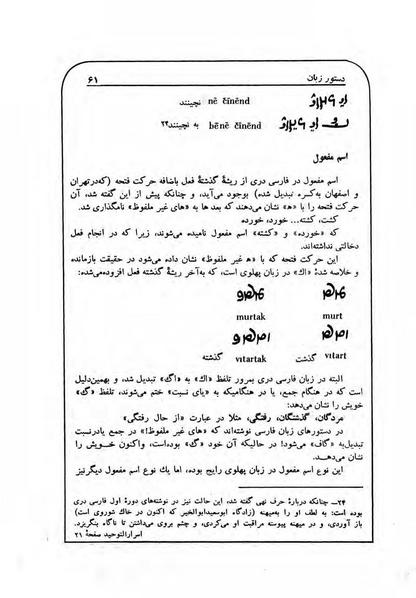 دستور زبان ۶۱
nē čīnēnd نچینند
bēnē čīnēnd به نچینند۲۴
اسم مفعول
اسم مفعول در فارسی دری از ریشهٔ گذشتهٔ فعل باضافه حرکت فتحه (که‌در‌تهران
و اصفهان به‌کسره تبدیل شده) بوجود می‌آید، و چنانکه پیش از این گفته شد، آن
حرکت فتحه را با «ه» نشان می‌دهند که بعدها به «های غیر ملفوظ» نامگذاری شد.
کشت، کشته... خورد، خورده
که «خورده» و «کشته» اسم مفعول نامیده می‌شوند، زیرا که در انجام فعل
دخالتی نداشته‌اند.
این حرکت فتحه که با «ه غیر ملفوظ» نشان داده می‌شود در حقیقت بازمانده
و خلاصه شدهٔ «اك» در زبان پهلوی است، که به‌آخر ریشهٔ گذشته فعل افزوده‌می‌شده:
murtak murt
vıtartak گذشته vıtart گذشت
البته در زبان فارسی دری بمرور تلفظ «اك» به «اگ» تبدیل شد، و بهمین‌دلیل
است که در هنگام جمع، یا در هنگامیکه به «یای نسبت» ختم می‌شوند، تلفظ «گ»
خویش را نشان می‌دهد:
مردگان، گذشتگان، رفتگی، مثلا در عبارت «از حال رفتگی»
در دستورهای زبان فارسی نوشته‌اند که «های غیر ملفوظ» در جمع یادرنسبت
تبدیل‌به «گاف» می‌شود! در حالیکه آن خود «گ» بوده‌است، واکنون خویش را
نشان می‌دهد.
این نوع اسم مفعول در زبان پهلوی رایج بوده، اما یك نوع اسم مفعول دیگرنیز
۲۴ــ چنانکه دربارهٔ حرف نهی گفته شد، این حالت نیز در نوشته‌های دورهٔ اول فارسی دری
بوده است: به لطف او را به‌میهنه (زادگاه ابوسعیدابوالخیر که اکنون در خاك شوروی است)
باز آوردی، و در میهنه پیوسته مراقبت او می‌کردی، و چشم بروی می‌داشتن تا ناگاه بنگریزد.
اسرارالتوحید صفحهٔ ۲۱